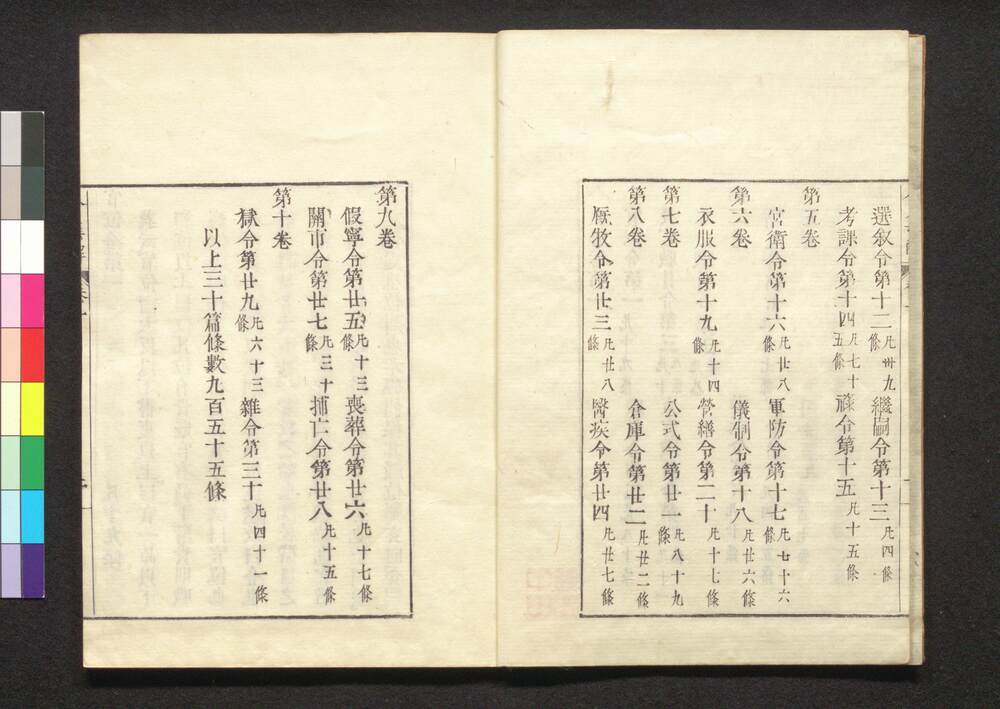 選叙令第十二 凡卅九條 繼嗣令第十三 凡四條
考課令第十四 凡七十五條 祿令第十五 凡十五條
第五卷
宮衛令第十六 凡廿八條 軍防令第十七 凡七十六條
第六卷
儀制令第十八 凡廿六條
衣服令第十九 凡十四條 營繕令第二十 凡十七條
第七卷
公式令第廿一 凡八十九條
第八卷
倉庫令第廿二 凡廿二條
厩牧令第廿三 凡廿八條 醫疾令第廿四 凡廿七條
第九卷
假寧令第廿五 凡十三條 喪葬令第廿六 凡十七條
關市令第廿七 凡二十條 捕亡令第廿八 凡十五條
第十卷
獄令第廿九 凡六十三條 雜令第三十 凡四十一條
以上三十篇條數九百五十五條